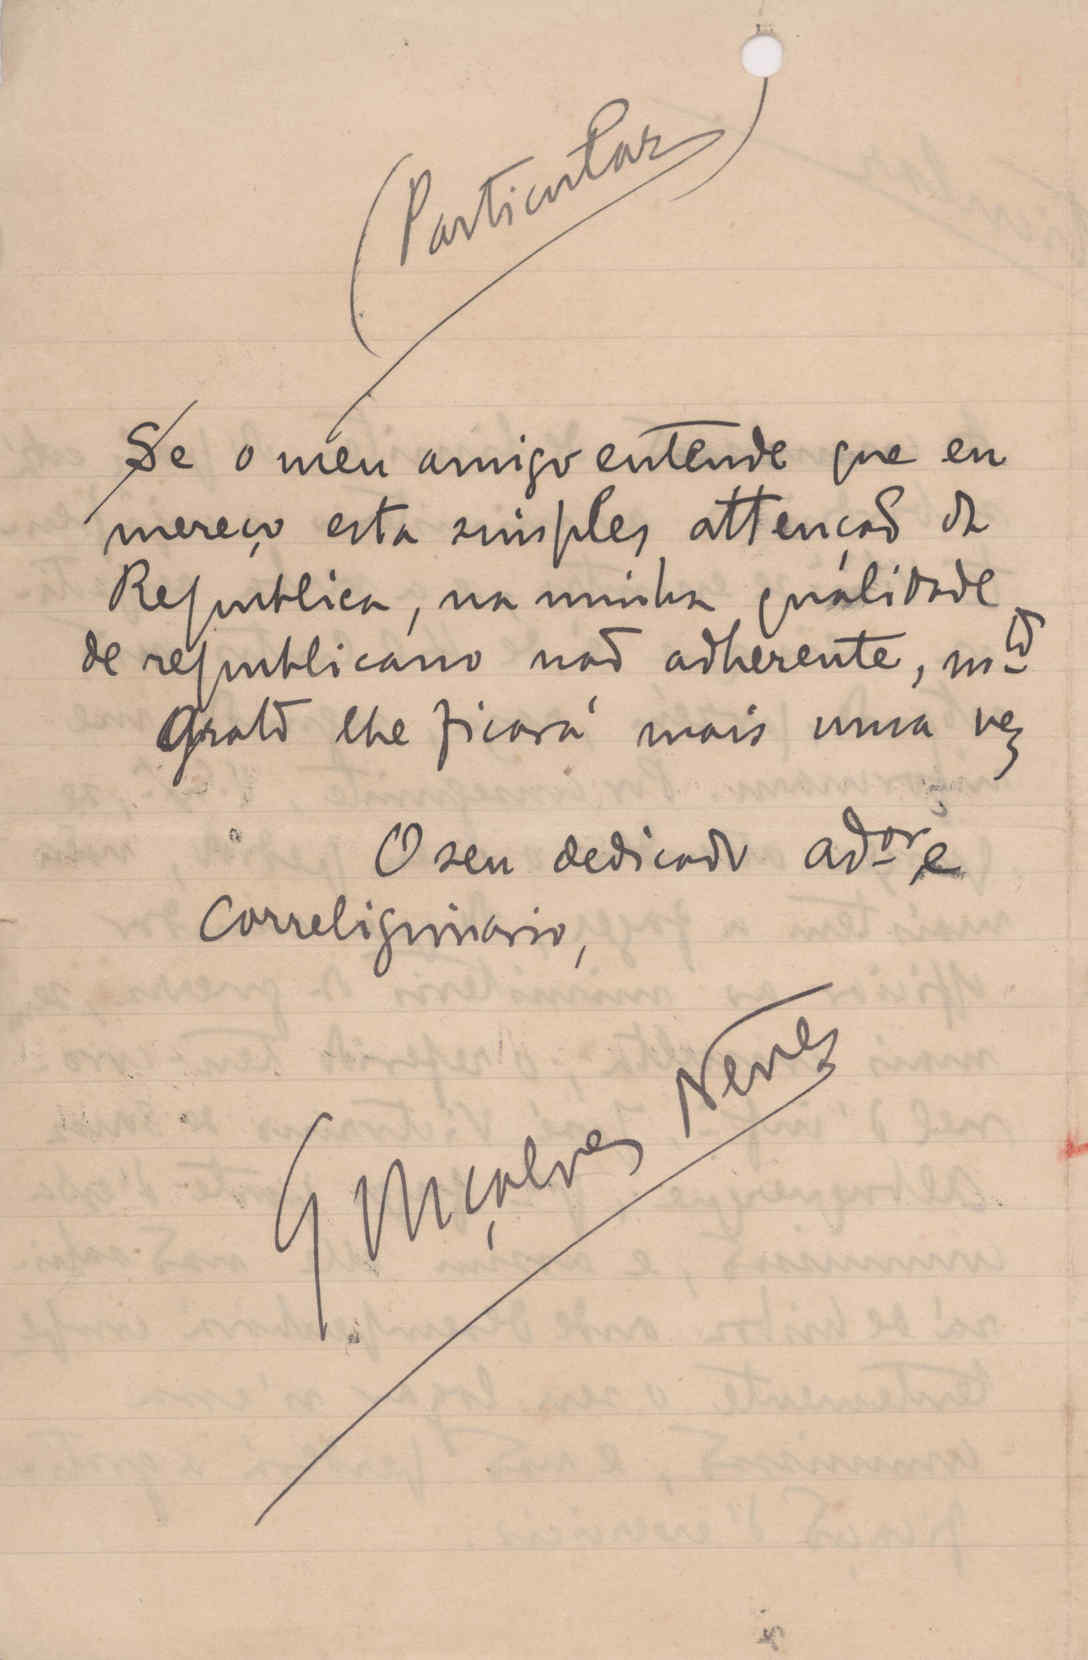 (Particular)
Se o meu amigo entende que eu
mereço esta simples attenção da
Republica, na minha qualidade
de republicano não adherente, mto
grato lhe ficará mais uma vez
O seu dedicado ador e
Correligionario,
Gonçalves Neves